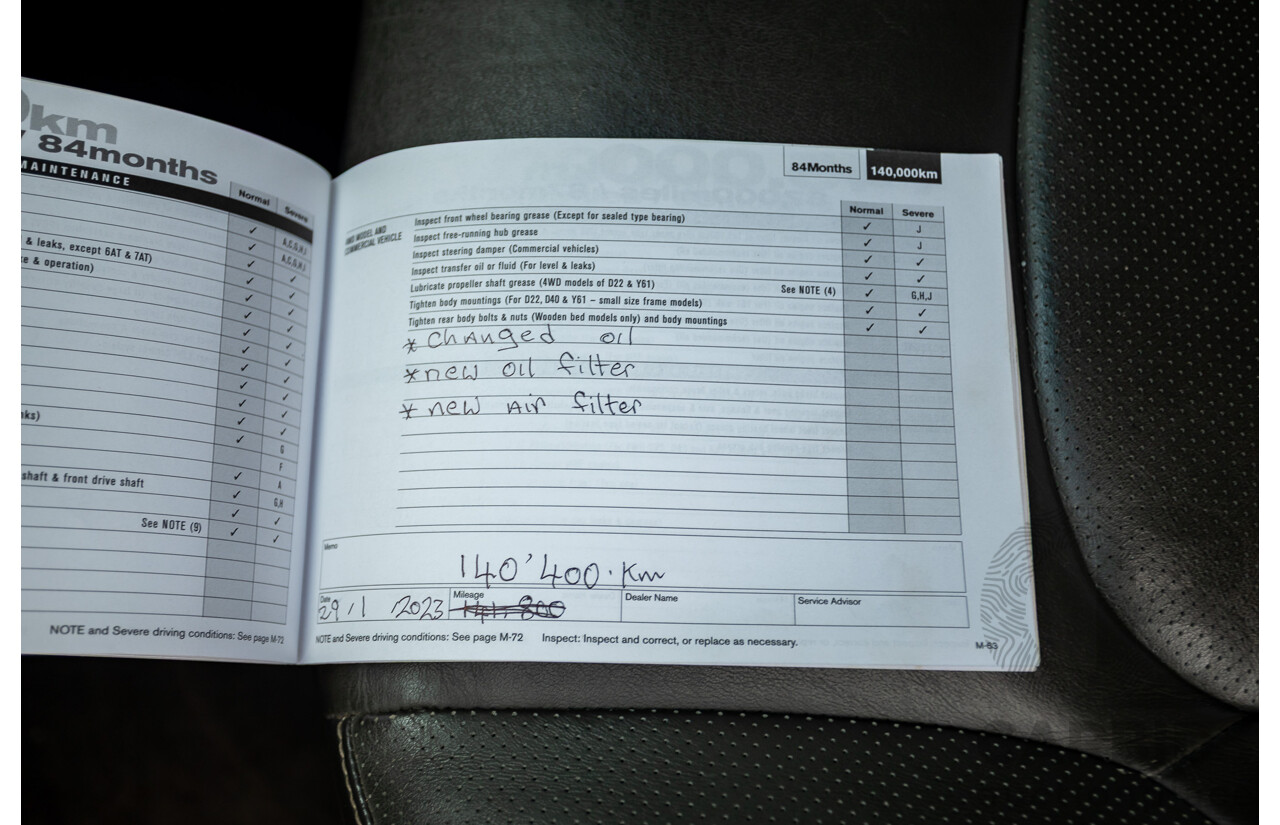 km
84months
MAINTENANCE
Normal Severe
✓ A,C,G,H,J
✓ A,C,G,H,J
& leaks, except 6AT & 7AT) ✓ ✓
& operation) ✓ ✓
✓ ✓
✓ ✓
✓ ✓
✓ ✓
✓ ✓
✓ ✓
✓ ✓
✓ G
F
shaft & front drive shaft ✓ A
✓ G,H
✓ ✓
See NOTE (9) ✓ ✓
NOTE and Severe driving conditions: See page M-72
84Months 140,000km
Normal Severe
4WD MODEL AND COMMERCIAL VEHICLE
Inspect front wheel bearing grease (Except for sealed type bearing) ✓ J
Inspect free-running hub grease ✓ J
Inspect steering damper (Commercial vehicles) ✓ ✓
Inspect transfer oil or fluid (For level & leaks) ✓ ✓
Lubricate propeller shaft grease (4WD models of D22 & Y61) See NOTE (4) ✓ G,H,J
Tighten body mountings (For D22, D40 & Y61 – small size frame models) ✓ ✓
Tighten rear body bolts & nuts (Wooden bed models only) and body mountings ✓ ✓
* changed oil
* new oil filter
* new Air filter
Memo
140'400·Km
Date Mileage Dealer Name Service Advisor
29/1 /2023
NOTE and Severe driving conditions: See page M-72 Inspect: Inspect and correct, or replace as necessary.
M-63